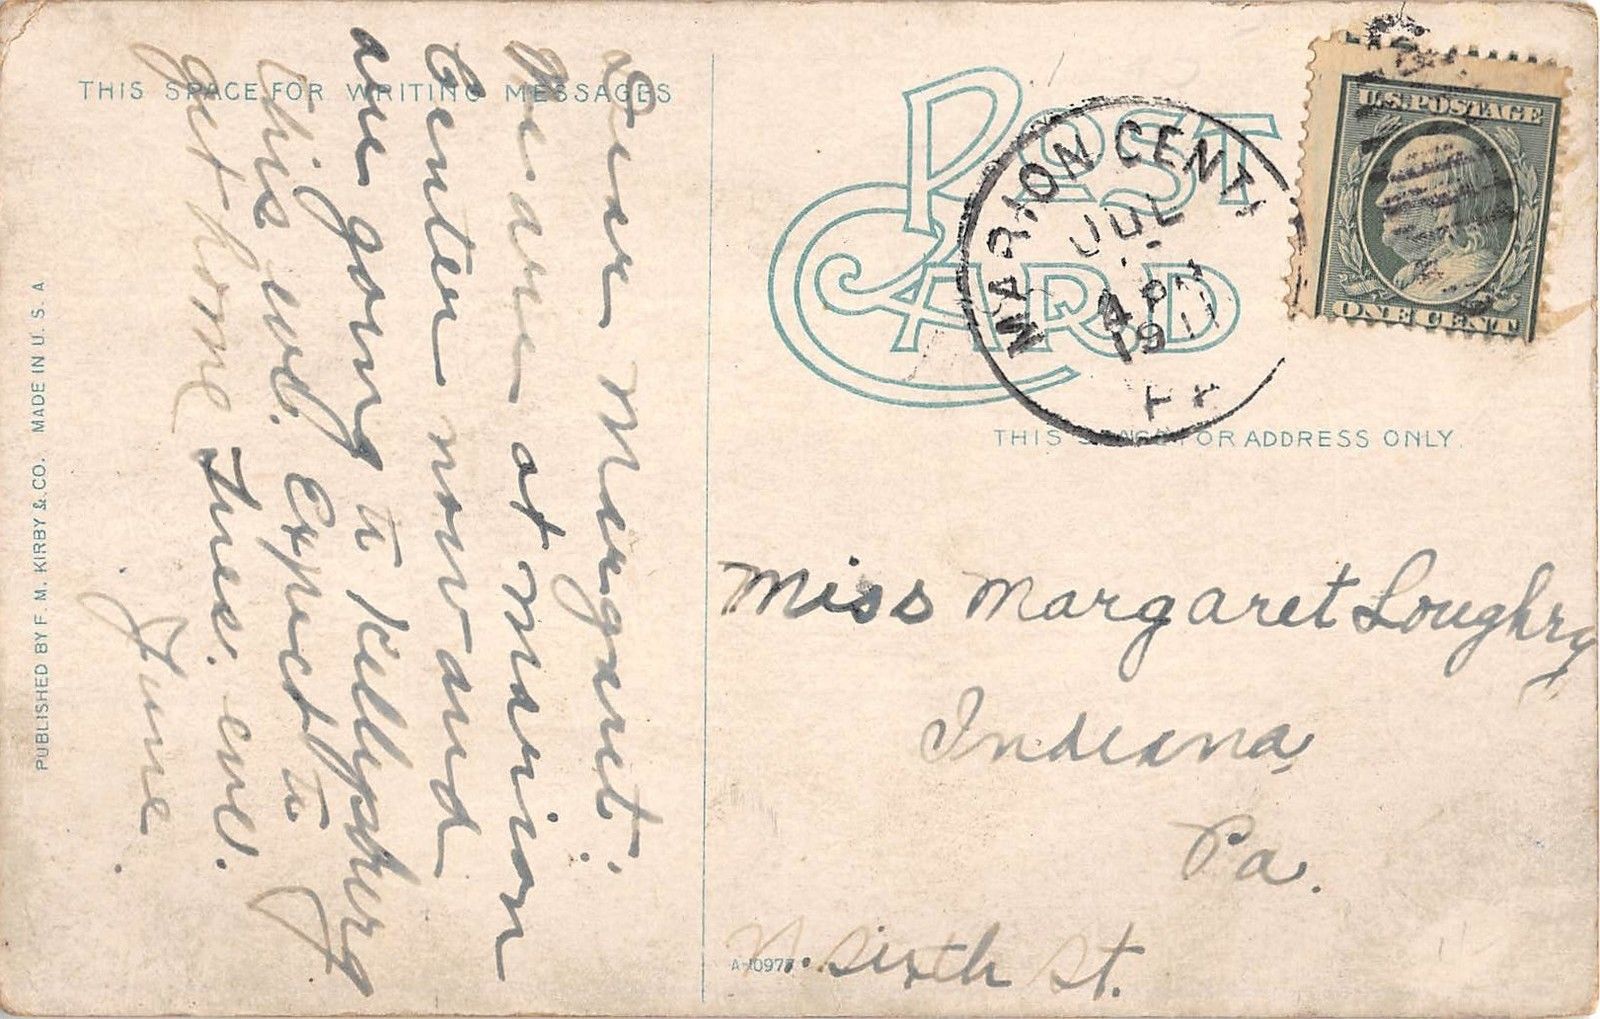 THIS SPACE FOR WRITING MESSAGES
Dear Margaret:
We are at Marion
Center now and
are going to Kellysburg
this eve. Expect to
get home Tues. eve.
June.
PUBLISHED BY F. M. KIRBY & CO. MADE IN U. S. A
POST
CARD
MARION CENT
JUL
4 P
1911
U.S. POSTAGE
ONE CENT
THIS FOR ADDRESS ONLY.
Miss Margaret Loughry
Indiana,
Pa.
N. Sixth St.
A-10977